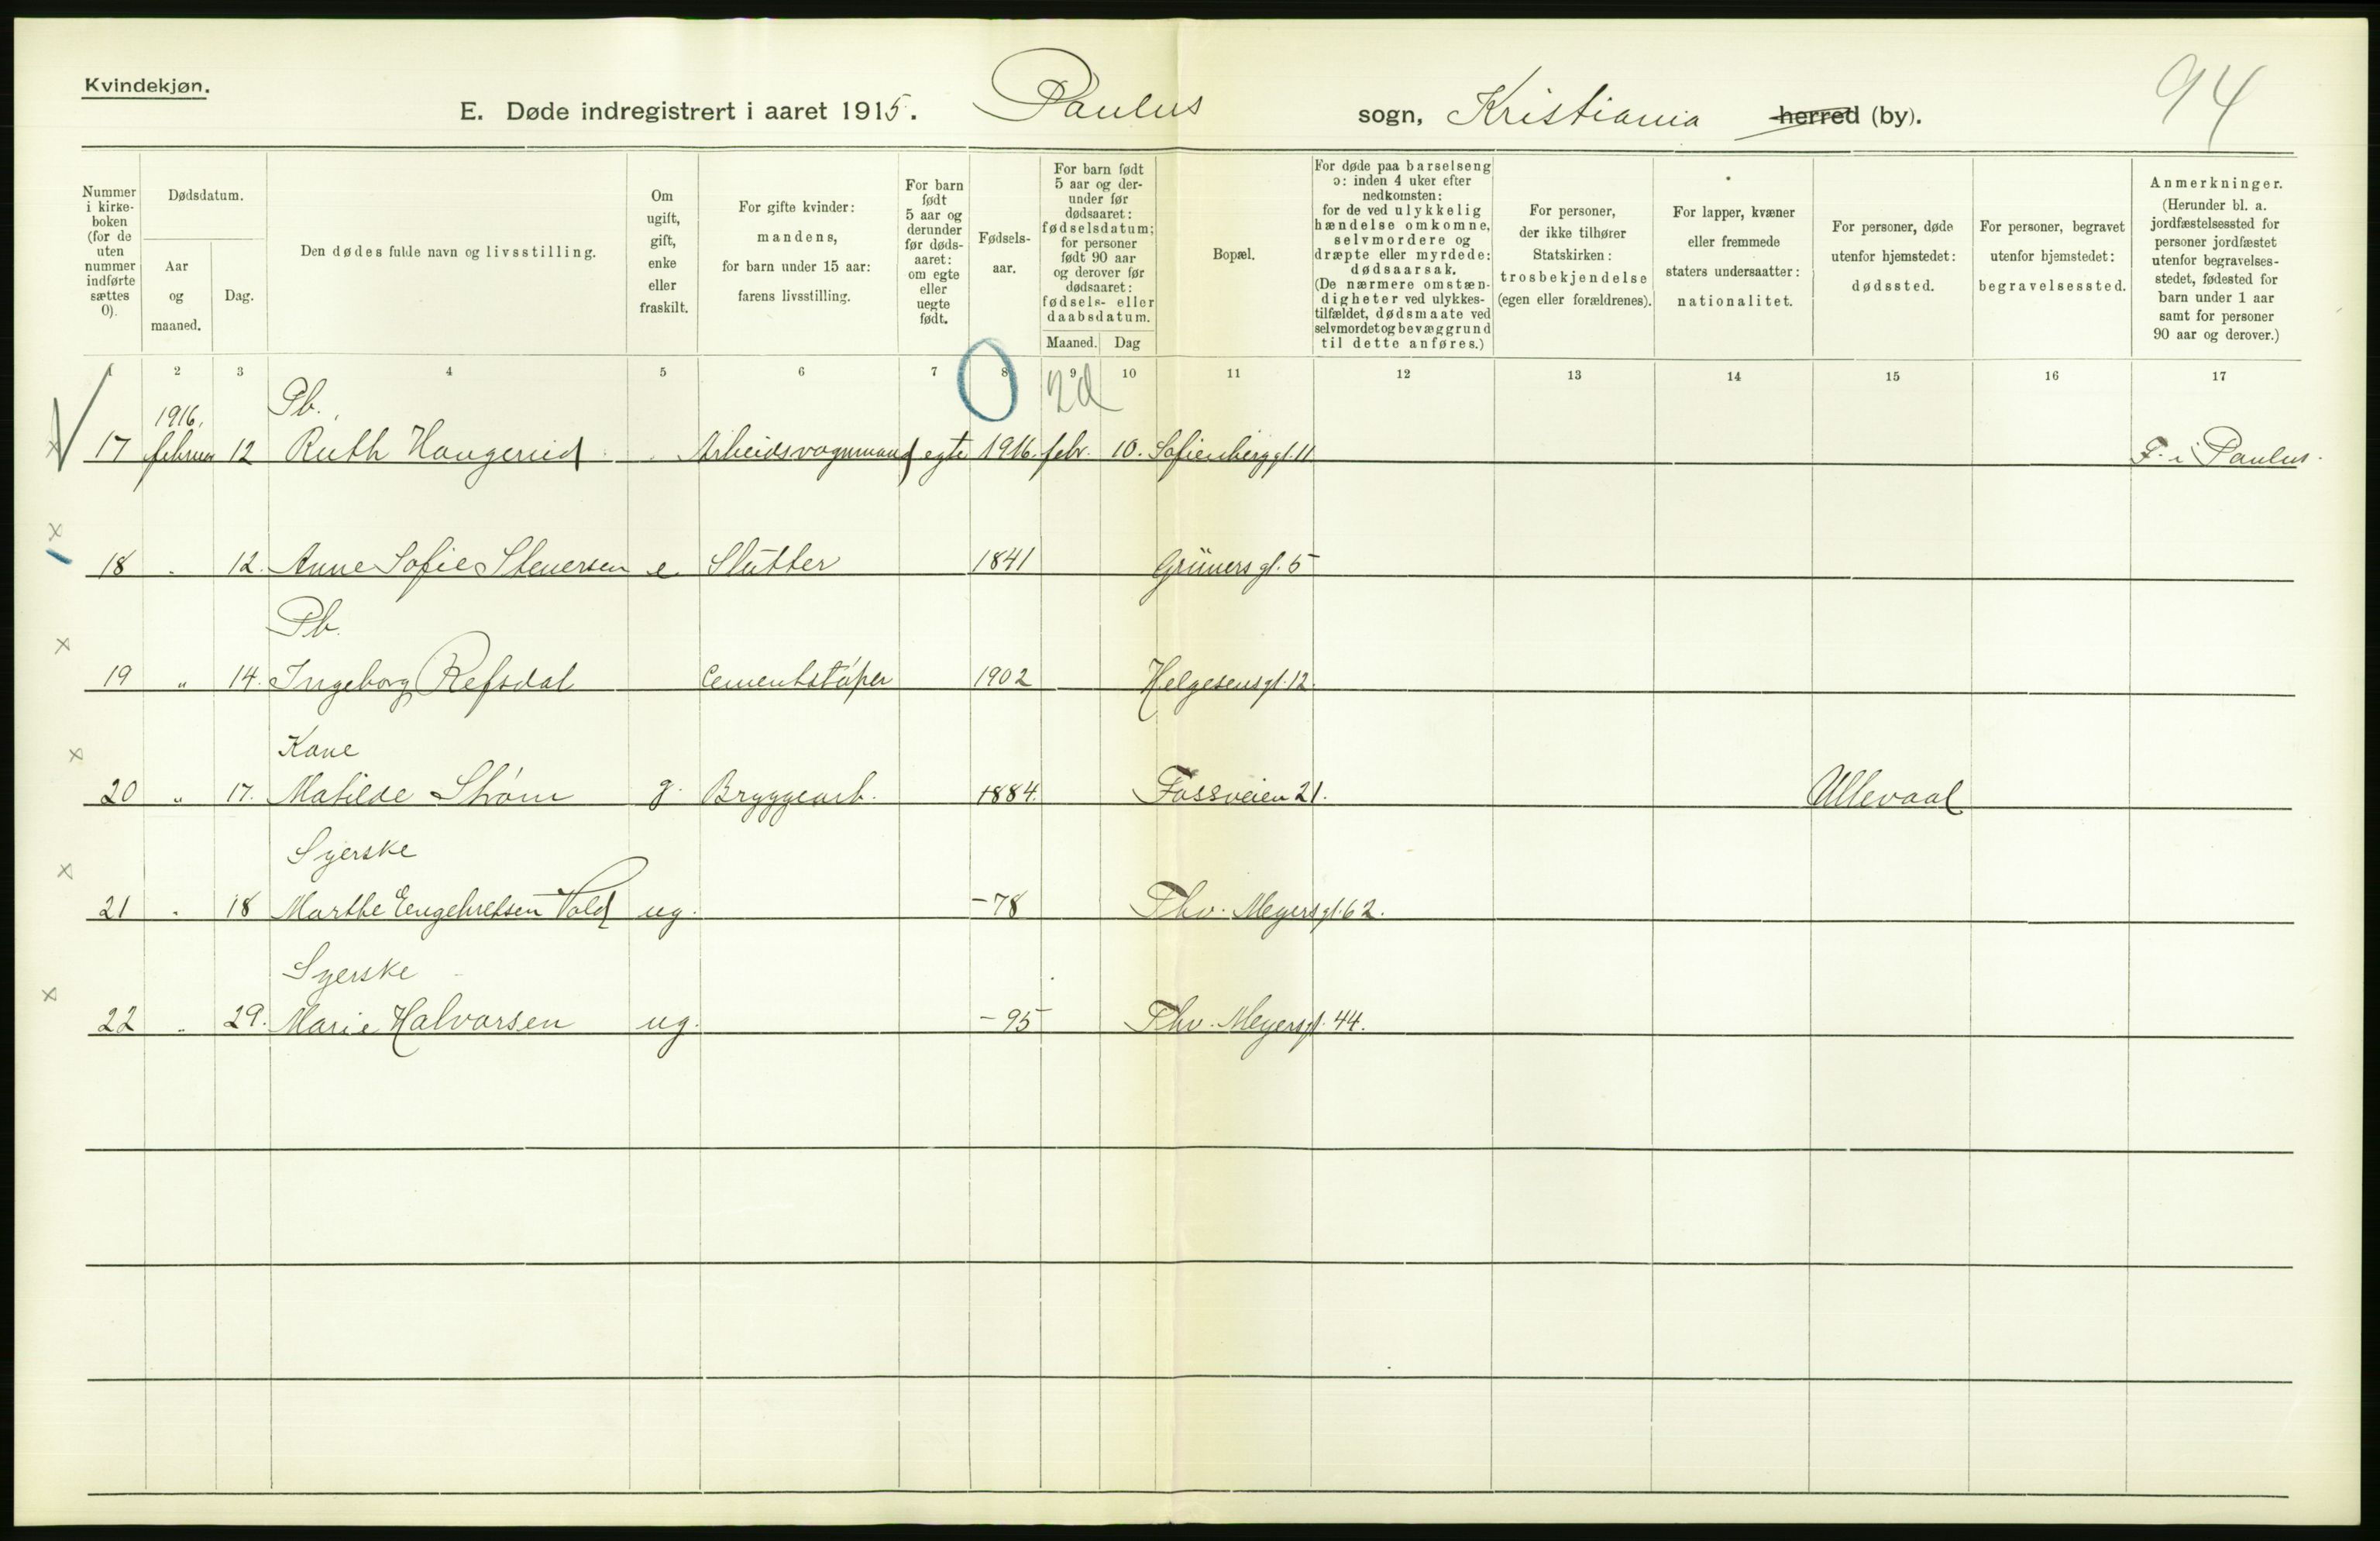 Kvindekjøn.
94
E. Døde indregistrert i aaret 1915. Paulus sogn, Kristiania herred (by).
Nummer i kirke-boken (for de uten nummer indførte sættes 0).
Dødsdatum.
Aar og maaned.
Dag.
Den dødes fulde navn og livsstilling.
Om ugift, gift, enke eller fraskilt.
For gifte kvinder: mandens, for barn under 15 aar: farens livsstilling.
For barn født 5 aar og derunder før døds-aaret: om egte eller uegte født.
Fødsels-aar.
For barn født 5 aar og der-under før dødsaaret: fødselsdatum; for personer født 90 aar og derover før dødsaaret: fødsels- eller daabsdatum.
Maaned. Dag
Bopæl.
For døde paa barselseng ɔ: inden 4 uker efter nedkomsten: for de ved ulykkelig hændelse omkomne, selvmordere og dræpte eller myrdede: dødsaarsak. (De nærmere omstæn-digheter ved ulykkes-tilfældet, dødsmaate ved selvmordet og bevæggrund til dette anføres.)
For personer, der ikke tilhører Statskirken: trosbekjendelse (egen eller forældrenes).
For lapper, kvæner eller fremmede staters undersaatter: nationalitet.
For personer, døde utenfor hjemstedet: dødssted.
For personer, begravet utenfor hjemstedet: begravelsessted.
Anmerkninger. (Herunder bl. a. jordfæstelsessted for personer jordfæstet utenfor begravelses-stedet, fødested for barn under 1 aar samt for personer 90 aar og derover.)
1 2 3 4 5 6 7 8 9 10 11 12 13 14 15 16 17
0 2d
1916. Pb.
17 februar 12 Ruth Haugerud Arbeidsvognmand egte 1916. febr. 10. Sofienberggt. 11 F. i Paulus.
x
18 " 12. Anne Sofie Stenersen e. Slutter 1841 Grüners gt. 5
Pb.
x
19 " 14. Ingeborg Refsdal Cementstøper 1902 Helgesensgt. 12.
Kone
x
20 " 17. Matilde Strøm g. Bryggearb. 1884. Fossveien 21. Ullevaal
Syerske
x
21 " 18 Marthe Engebretsen Vold ug. -78 Thv. Meyersgt. 62.
Syerske
x
22 " 29. Marie Halvorsen ug. -95 Thv. Meyersgt. 44.